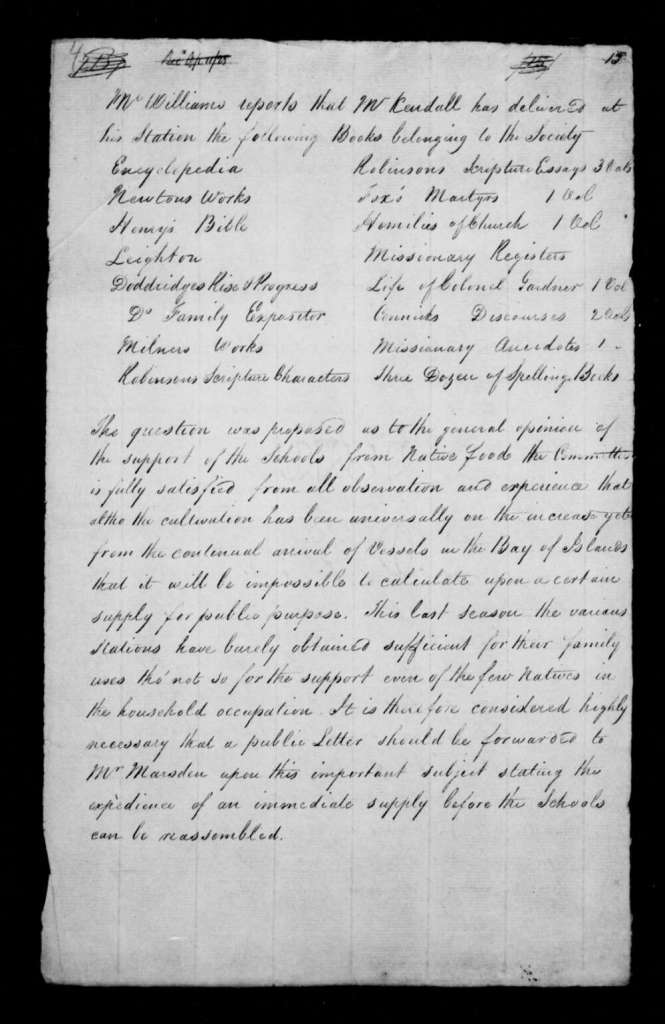 4 15
Mr Williams reports that Mr Kendall has delivered at
his Station the following Books belonging to the Society
Encyclopedia Robinsons Scripture Essays 3 Vols
Newtons Works Fox's Martyrs 1 Vol
Henry's Bible Homilies of Church 1 Vol
Leighton Missionary Registers
Doddridges Rise & Progress Life of Colonel Gardner 1 Vol
Do Family Expositor Cennicks Discourses 2 Vols
Milners Works Missionary Anecdotes 1 -
Robinsons Scripture Characters Three Dozen of Spelling Books
The question was proposed as to the general opinion of
the support of the Schools from Native food the Committee
is fully satisfied from all observation and experience that
altho the cultivation has been universally on the increase yet
from the continual arrival of Vessels in the Bay of Islands
that it will be impossible to calculate upon a certain
supply for public purpose. This last season the various
Stations have barely obtained sufficient for their family
uses tho' not so for the support even of the few Natives in
the household occupation. It is therefore considered highly
necessary that a public Letter should be forwarded to
Mr Marsden upon this important subject stating the
expedience of an immediate supply before the Schools
can be reassembled.